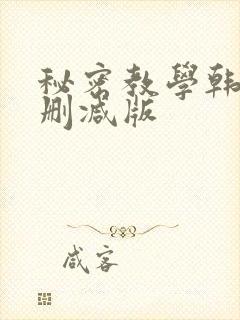 秘密教學韩
删减版
咸客